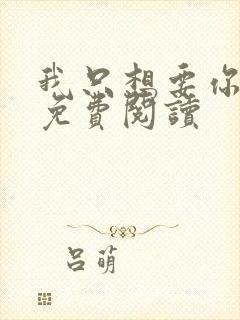 我只想要你
免費閱讀
吕萌